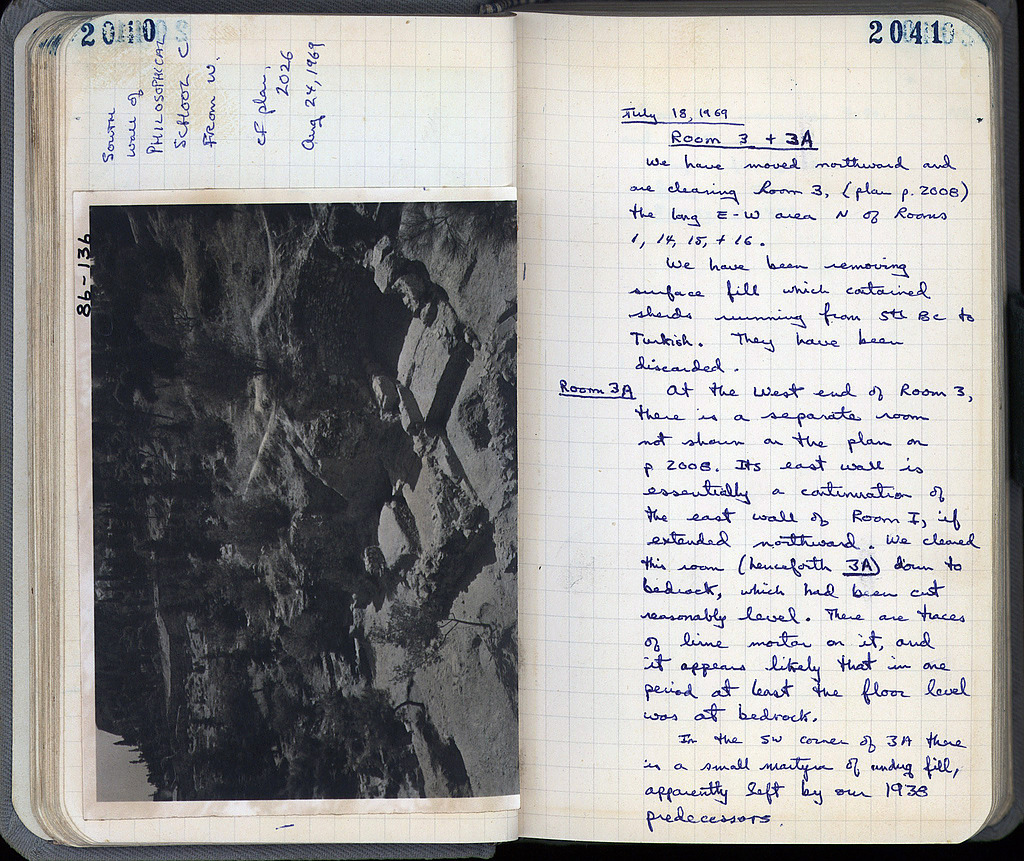 South
wall of
PHILOSOPHICAL
SCHOOL C
From W.
cf plan,
2026
Aug 24, 1969
86-136
July 18, 1969
Room 3 + 3A
We have moved northward and
are clearing Room 3, (plan p. 2008)
the long E-W area N of Rooms
1, 14, 15, + 16.
We have been removing
surface fill which contained
sherds running from 5th BC to
Turkish. They have been
discarded.
Room 3A At the West end of Room 3,
there is a separate room
not shown on the plan on
p 2008. Its east wall is
essentially a continuation of
the east wall of Room I, if
extended northward. We cleared
this room (henceforth 3A) down to
bedrock, which had been cut
reasonably level. There are traces
of lime mortar on it, and
it appears likely that in one
period at least the floor level
was at bedrock.
In the SW corner of 3A there
is a small martyr of undug fill,
apparently left by our 1938
predecessors.